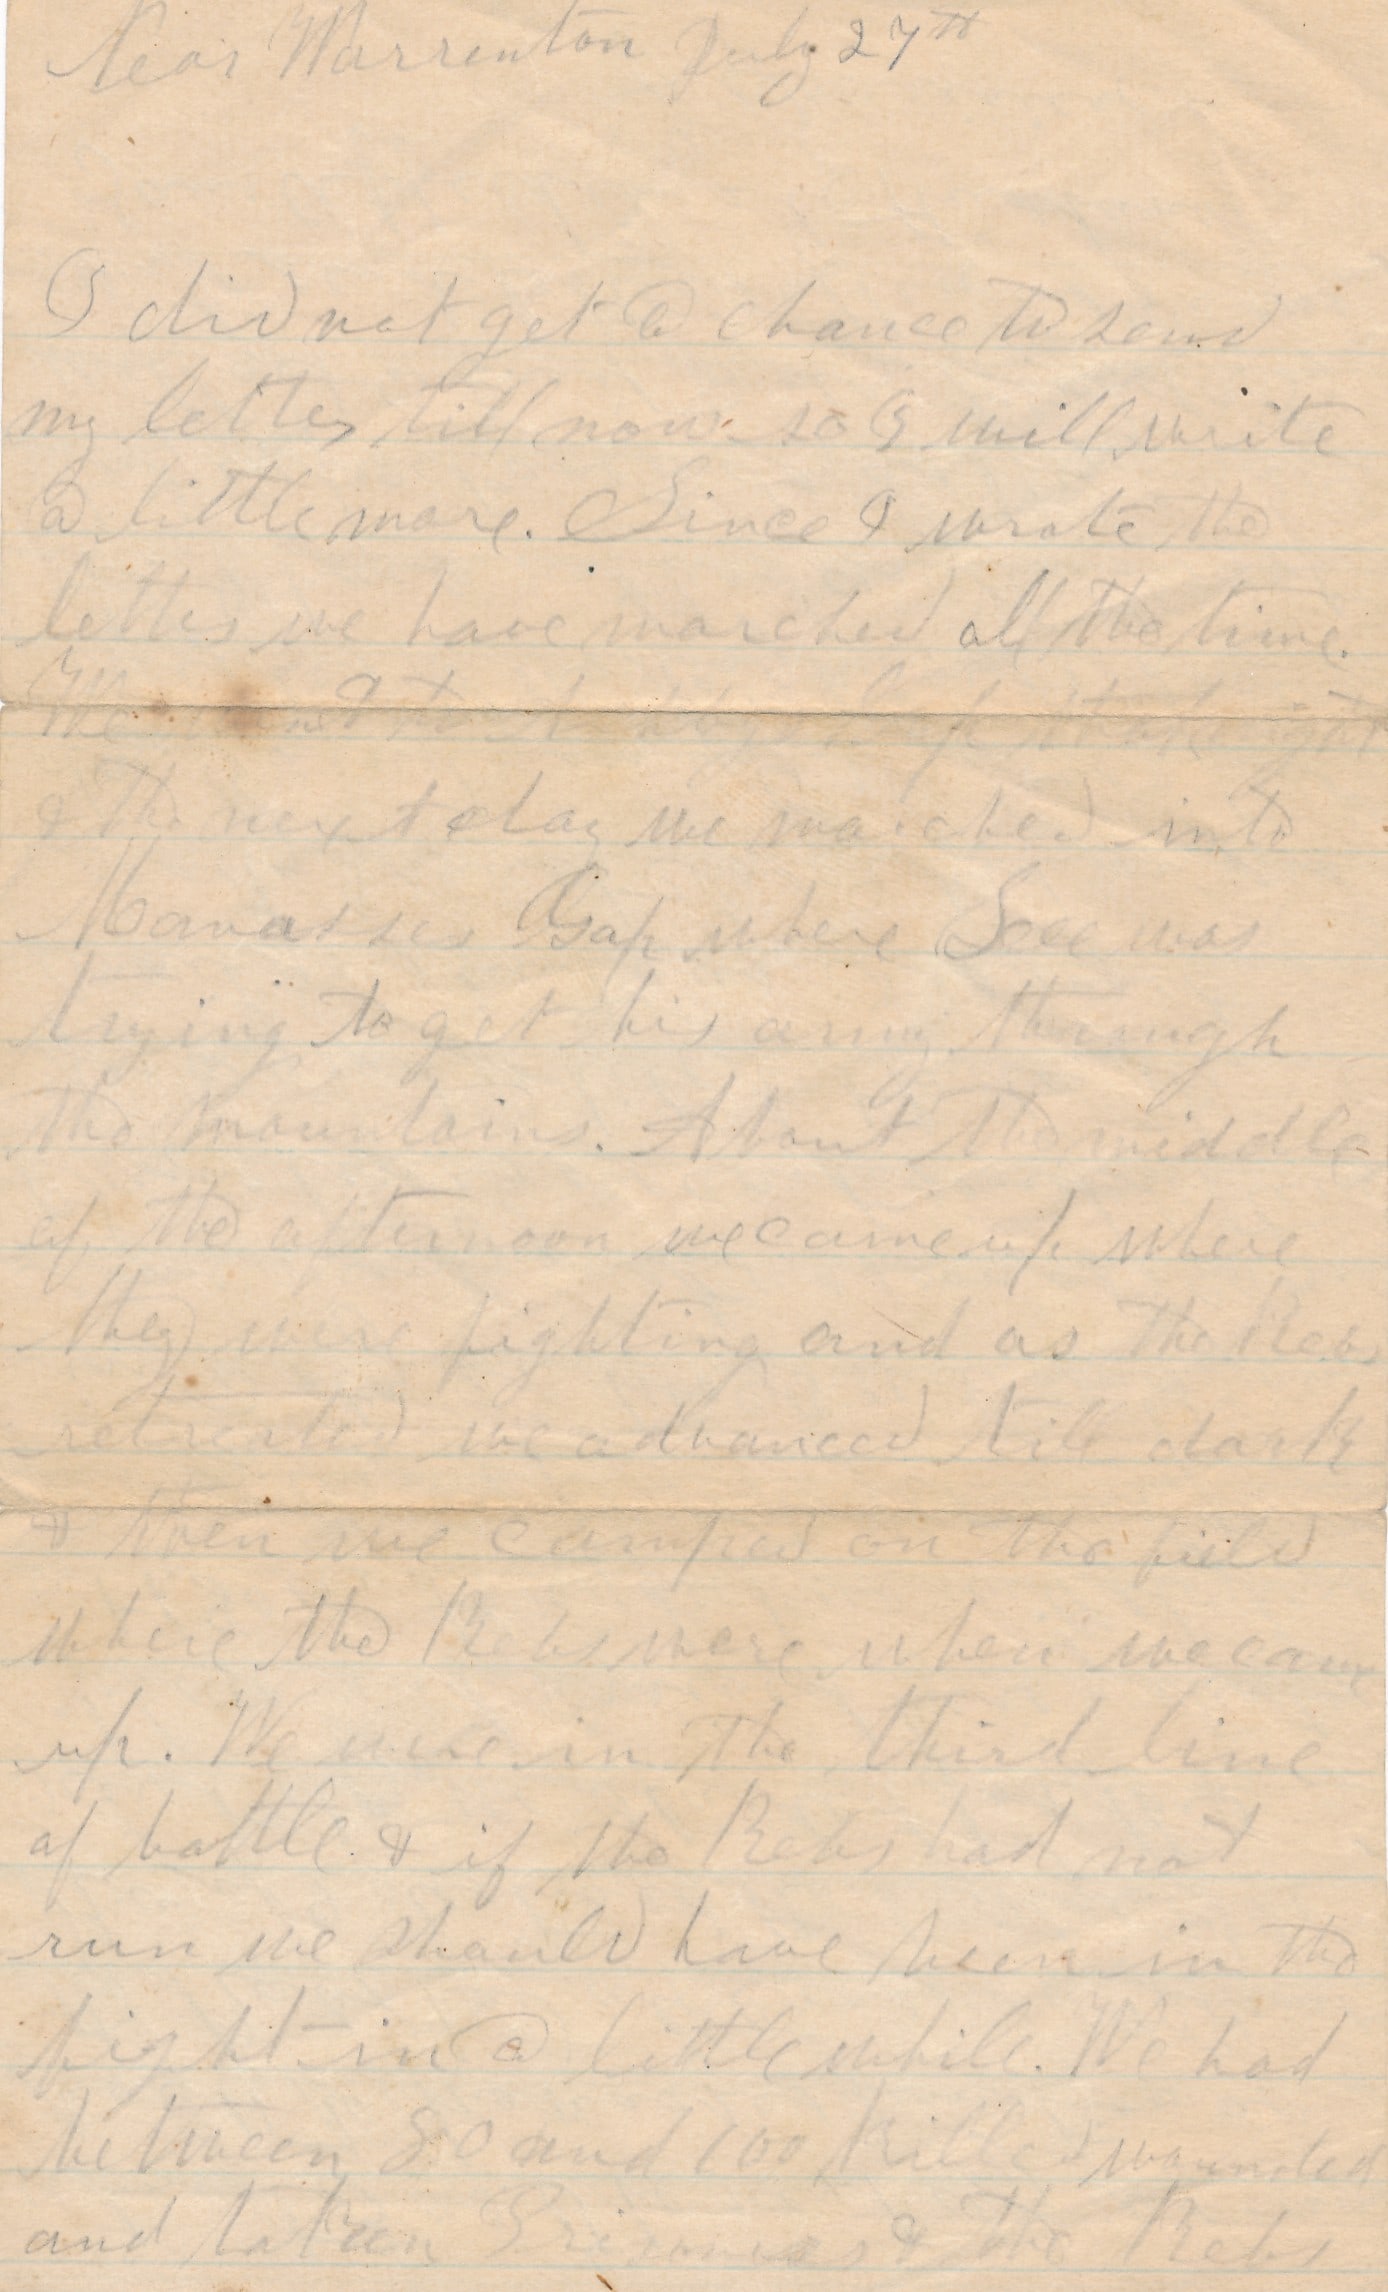 Near Warrenton July 27th
I did not get a chance to send
my letter till now so I will write
a little more. Since I wrote the
letter we have marched all the time.
We
& the next day we marched into
Manasses Gap where Lee was
trying to get his army through
the mountains. About the middle
of the afternoon we came up where
they were fighting and as the Rebs
retreated we advanced till dark
& then we camped on the field
where the Rebs were when we came
up. We were in the third line
of battle & if the Rebs had not
run we should have been in the
fight in a little while. We had
between 80 and 100 killed wounded
and taken Prisoners & the Rebs